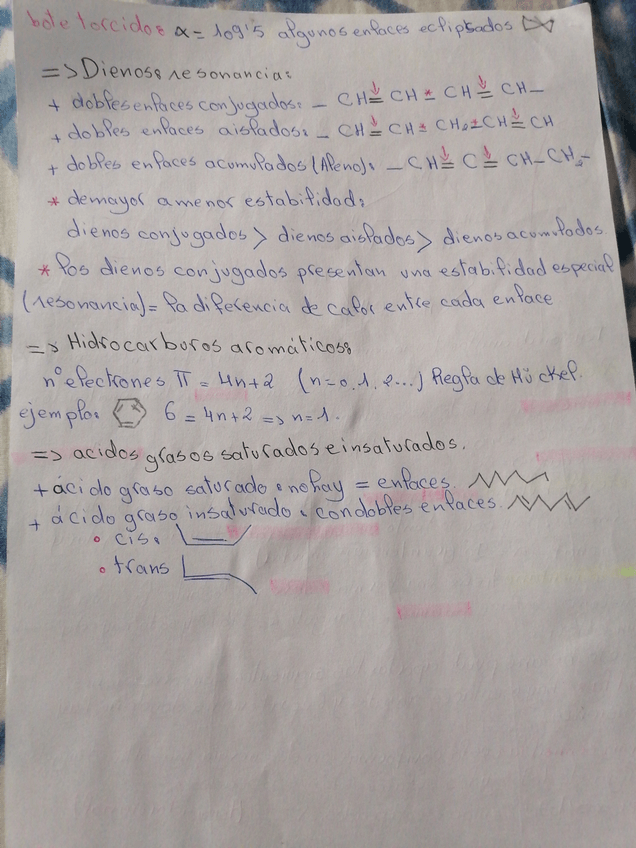 bote torcido: α = 109'5 algunos enlaces eclipsados
=> Dienos: resonancia:
+ dobles enlaces conjugados: - CH = CH - CH = CH -
+ dobles enlaces aislados: - CH = CH - CH₂ - CH = CH
+ dobles enlaces acumulados (Aleno): - CH = C = CH - CH₂ -
* de mayor a menor estabilidad:
dienos conjugados > dienos aislados > dienos acumulados.
* los dienos conjugados presentan una estabilidad especial
(resonancia) = la diferencia de calor entre cada enlace
=> Hidrocarburos aromáticos:
nº electrones π = 4n+2 (n=0,1,2...) Regla de Hückel.
ejemplo: 6 = 4n+2 => n=1.
=> acidos grasos saturados e insaturados.
+ ácido graso saturado: no hay = enlaces.
+ ácido graso insaturado: con dobles enlaces.
• cis:
• trans